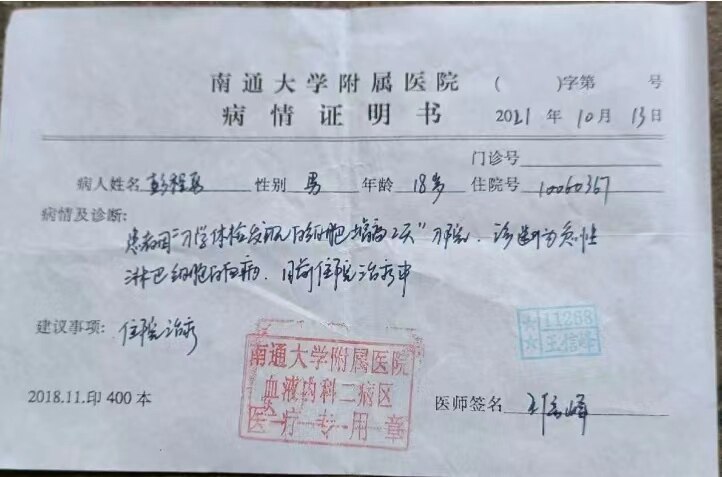 南通大学附属医院 ( )字第 号
病情证明书 2021 年 10 月 13 日
门诊号
病人姓名 彭程 性别 男 年龄 18岁 住院号 10060367
病情及诊断:
患者因"入学体检发现白细胞增高2天"入院. 诊断为急性
淋巴细胞白血病. 目前住院治疗中
建议事项: 住院治疗
11258
王信峰
南通大学附属医院
血液内科二病区
医疗专用章
2018.11.印 400 本
医师签名 王信峰